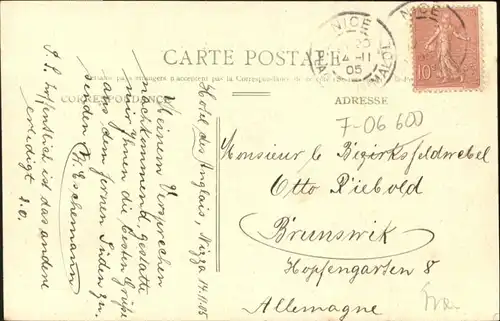 CARTE POSTALE
CORRESPONDANCE
ADRESSE
NICE
4-11
05
NICE
10
7-06 600
Monsieur le Bezirksfeldwebel
Otto Riebold
Brunswik
Hopfengarten 8
Allemagne
Hotel des Anglais, Nizza 14.11.05
Meinem Versprechen
nachkommend gestatte
mir Ihnen die besten Grüße
aus dem fernen Süden zu
senden
H. Eschemann
P.S. hoffentlich ist das andere
erledigt d.O.